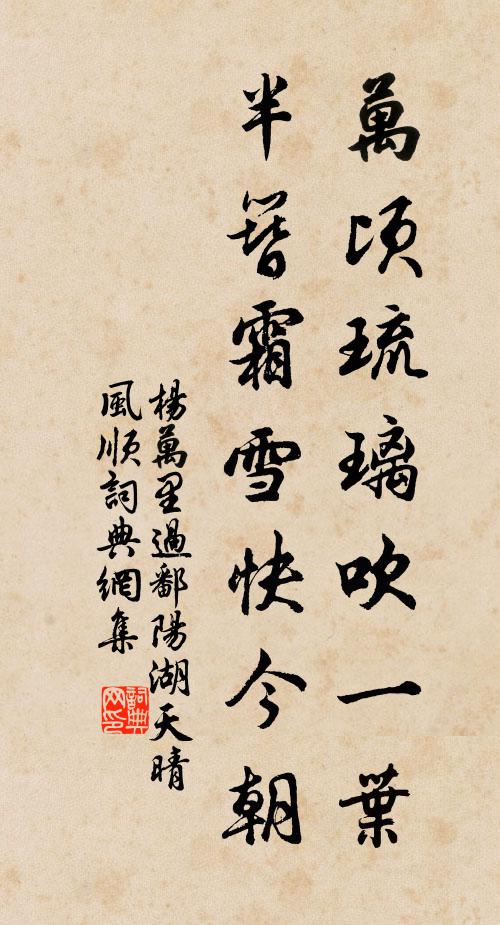 萬頃琉璃吹一葉
半簪霜雪快今朝
楊萬里過鄱陽湖天晴
風順詞典網集
詞典
网印